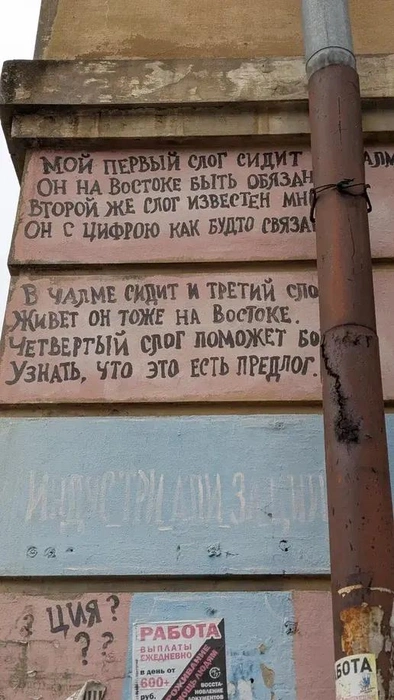 МОЙ ПЕРВЫЙ СЛОГ СИДИТ
ОН НА ВОСТОКЕ БЫТЬ ОБЯЗАН
ВТОРОЙ ЖЕ СЛОГ ИЗВЕСТЕН
ОН С ЦИФРОЮ КАК БУДТО
В ЧАЛМЕ СИДИТ И ТРЕТИЙ
ЖИВЕТ ОН ТОЖЕ НА ВОСТОКЕ.
ЧЕТВЕРТЫЙ СЛОГ ПОМОЖЕТ
УЗНАТЬ, ЧТО ЭТО ЕСТЬ ПРЕДЛОГ.
ЦИЯ?
? ?
РАБОТА
ВЫПЛАТЫ
ЕЖЕДНЕВНО
в день от
600+
руб.
ПРОЖИВАНИЕ
ВОССТА-
НОВЛЕНИЕ
ДОКУМЕНТОВ
БОТА